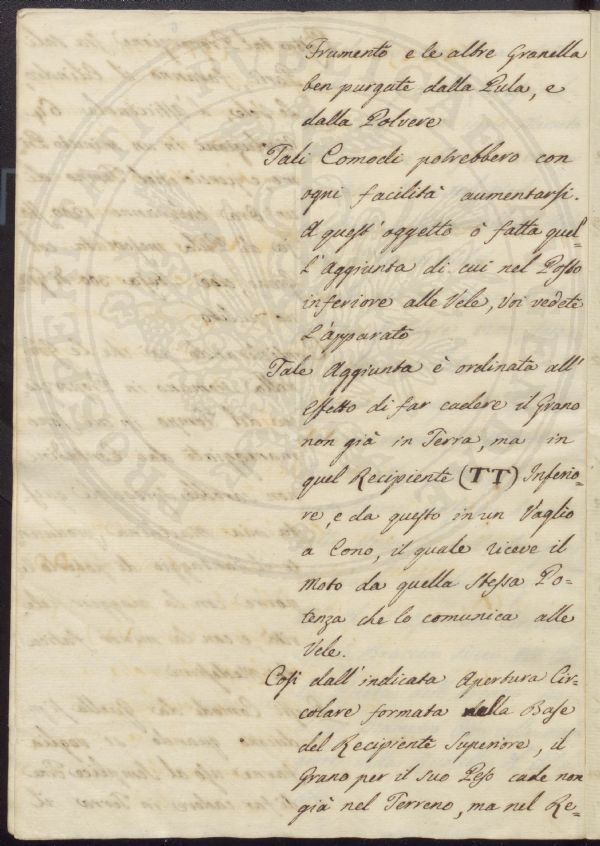 Frumento e le altre Granella
ben purgate dalla Pula, e
dalla Polvere
Tali Comodi potrebbero con
ogni facilità aumentarsi.
A quest'oggetto ò fatta quel=
l'Aggiunta di cui nel Posto
inferiore alle Vele, Voi vedete
l'apparato
Tale Aggiunta è ordinata all'
effetto di far cadere il Grano
non già in Terra, ma in
quel Recipiente (TT) Inferio=
re, e da questo in un Vaglio
a Cono, il quale riceve il
Moto da quella stessa Po=
tenza che lo comunica alle
Vele.
Così dall'indicata Apertura Cir=
colare formata nella Base
del Recipiente Superiore, il
Grano per il suo Peso cade non
già nel Terreno, ma nel Re=